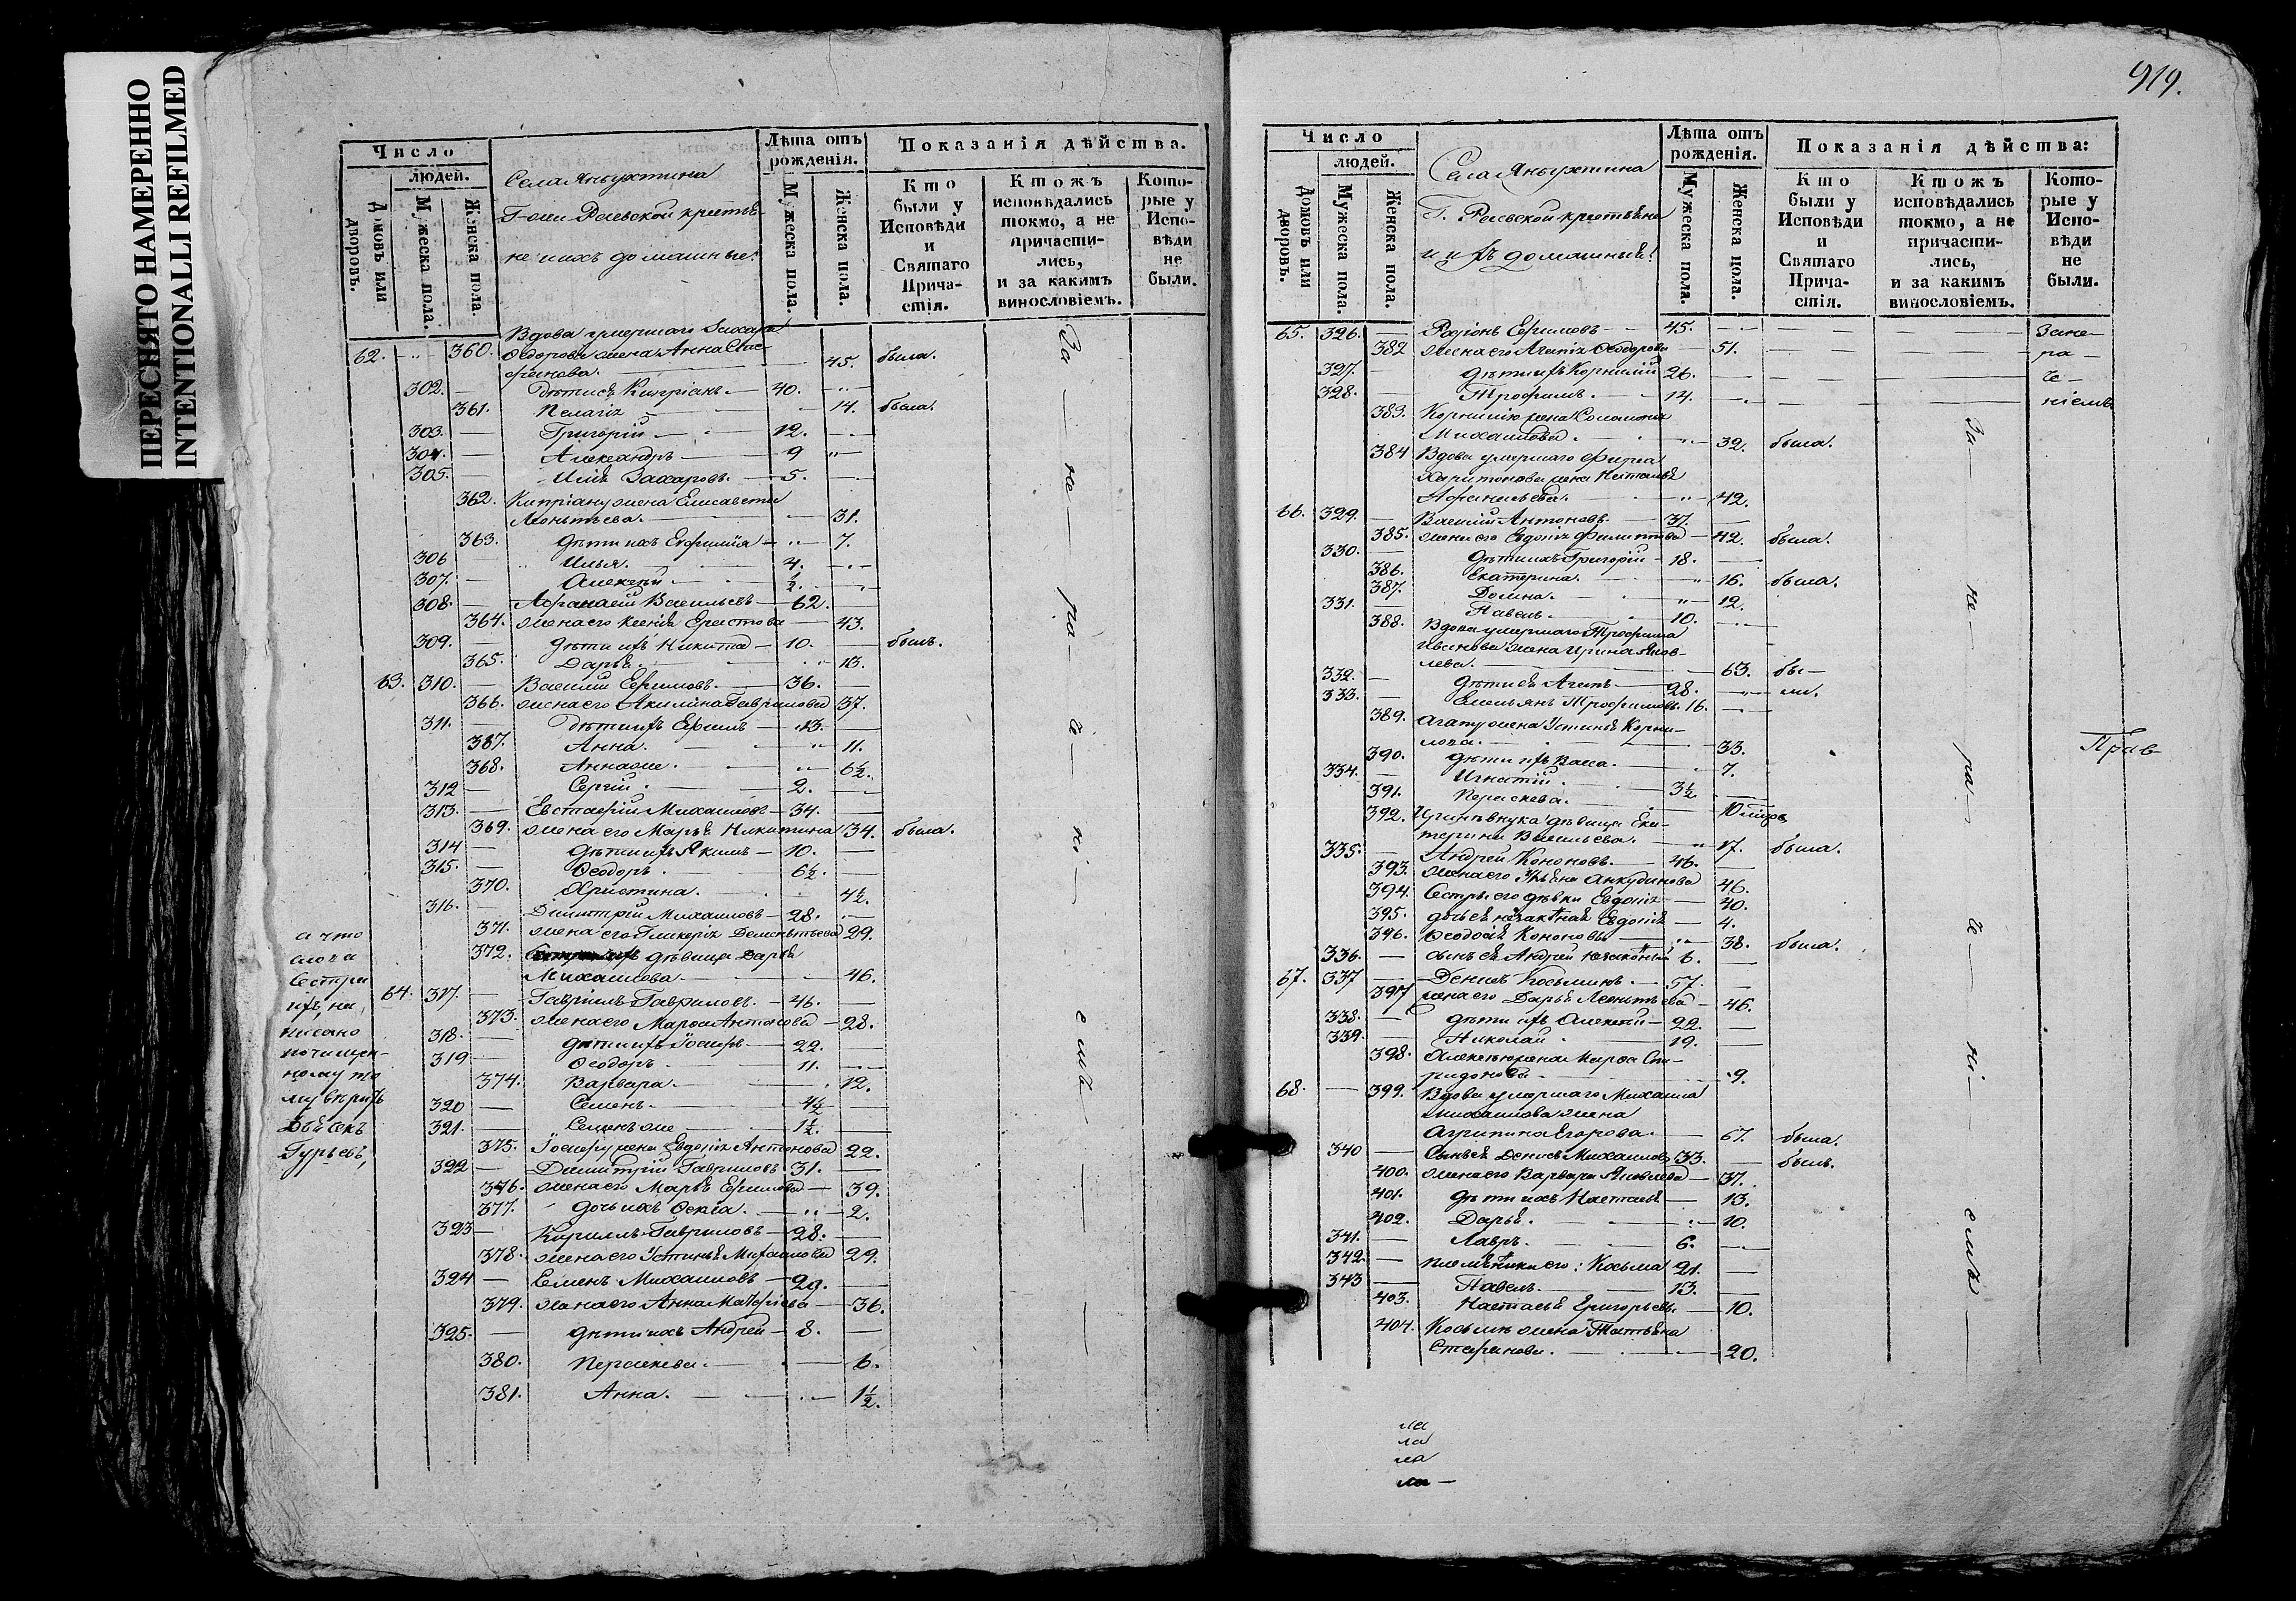 ПЕРЕСНЯТО НАМЕРЕННО
INTENTIONALLI REFILMED
Число
людей.
Домовъ или дворовъ.
Мужеска пола.
Женска пола.
Села Яныхтина
не ихъ домашные:
Лѣта отъ рожденія.
Мужеска пола.
Женска пола.
Показанія дѣйства.
Кто были у Исповѣди и Святаго Прича-стія.
Ктожъ исповѣдались токмо, а не причасти-лись, и за какимъ винословіемъ.
Кото-рые у Испо-вѣди не были.
Вдова умершаго Захара
62. 360. Ѳедорова жена Анна
45. была.
302. — Дѣти ея Кипріанъ — 40.
361. Пелагія — 14. была.
303. — Григорій — 12.
304. — Александръ — 9
305. Захаровъ. — 5.
362. Кипріану жена Елисавета
Леонтьева. — 31.
363. дѣти ихъ Евфимія — 7.
306 Илья. — 4.
307. — Алексѣй — ½.
308. — Афанасій Васильевъ — 62.
364. жена его Ксенія — 43.
309. — дѣти ихъ Никита — 10. — былъ.
365. Дарья. — 13.
63. 310. — Василій Ефимовъ — 36. —
366. жена его Акилина Гаврилова 37.
311. — дѣти ихъ Ефимъ — 13. —
367. Анна. — 11.
368. Анна же. — 6½.
312 — Сергій. — 2. —
313. — Евстафій Михаиловъ — 34. —
369. жена его Марья Никитина 34. была.
314 — дѣти ихъ Якимъ — 10. —
315. — Ѳеодоръ. — 6½. —
370. Христина. — 4½.
316. — Димитрій Михаиловъ — 28.
371. жена его Гликерія Дементьева 29.
372. дѣвица Дарья
Михаилова. — 46.
64. 317. — Гавріилъ Гавриловъ. — 46. —
373. жена его Марѳа Антонова — 28.
318. — дѣти ихъ Іосифъ — 22. —
319 — Ѳеодоръ. — 11.
374. Варвара. — 12.
320 — Семенъ. — 4½ —
321. — Семенъ же — 1½. —
375. Іосифу жена Евдокія Антонова 22.
322 — Димитрій Гавриловъ 31. —
376. жена его Марья Ефимова — 39.
377. дочь ихъ Ѳекла. — 2.
323 — Кириллъ Гавриловъ — 28. —
378. жена его Устинья Михаилова 29.
324 — Семенъ Михаиловъ — 29. —
379. жена его Анна — 36.
325. — дѣти ихъ Андрей — 8. —
380. Параскева. — 6.
381. Анна. — 1½.
За — не — ра — че — ні — емъ —
а что
слова
сестра
ихъ, на
писано
по чищен-
ному то
му вѣритъ
Гурьевъ,
919.
Число
людей.
Домовъ или дворовъ.
Мужеска пола.
Женска пола.
Села Яныхтина
и ихъ домашные:
Лѣта отъ рожденія.
Мужеска пола.
Женска пола.
Показанія дѣйства:
Кто были у Исповѣди и Святаго Прича-стія.
Ктожъ исповѣдались токмо, а не причасти-лись, и за какимъ винословіемъ.
Кото-рые у Испо-вѣди не были.
65. 326. — Родіонъ Ефимовъ — 45. — Зане-
382 жена его Агапія Ѳеодорова — 51. — ра —
327. — дѣти ихъ Корнилій 26. — че —
328. — Трофимъ. — 14. — ніемъ
383. Корнилію жена Соломонія
Михаилова. — 32. была.
384 Вдова умершаго
Харитонова жена Наталья
Афанасьева. — 42.
66. 329. — Василій Антоновъ. — 37. —
385. жена его Евдокія Филиппова — 42. была.
330. — дѣти ихъ Григорій — 18. —
386. Екатерина. — 16. была.
387. Домна. — 12.
331. — Павелъ. — 10.
388. Вдова умершаго Трофима
Иванова жена Ирина Яков-
лева. — 63. бы —
332. — дѣти ея Агапъ — 28. ли.
333. — Емельянъ Трофимовъ. 16. —
389. Агапу жена Устинья Корни-
лова. — 33.
390. дѣти ихъ Васса. — 7.
334. — Игнатій — 3½
391. Параскева.
392. внука дѣвица Ека-
терина Васильева. — 17. была.
335. — Андрей Кононовъ. — 46. —
393. жена его Ульяна Анкудинова 46.
394. Сестры его дѣвки Евдокія — 40.
395. дочь ея незаконная Евдокія — 4.
396. Ѳеодосія Кононова — 38. была.
336. — сынъ ея Андрей 6. —
67. 337 — Денисъ Козьминъ. — 57. —
397 жена его Дарья Леонтьева — 46.
338. — дѣти ихъ Алексѣй — 22. —
339. — Николай — 19. —
398. Алексѣю жена Марѳа Спи-
ридонова
68. — 399. Вдова умершаго Михаила
Михаилова жена
Агрипина Егорова. — 67. была.
340 — Сынъ ея Денисъ Михаиловъ 33. — былъ.
400. жена его Варвара Яковлева — 37.
401. дѣти ихъ Наталья — 13.
402. Дарья. — 10.
341. — Лавръ. — 6. —
342. — племянники его: Козьма 21. —
343 — Павелъ. — 13. —
403. Настасья Григорьевы. — 10.
404. Козьмѣ жена Татьяна
Стефанова. — 20.
За — не — ра — че — ні — емъ —
Прав-
ла
ла
ла
ла —